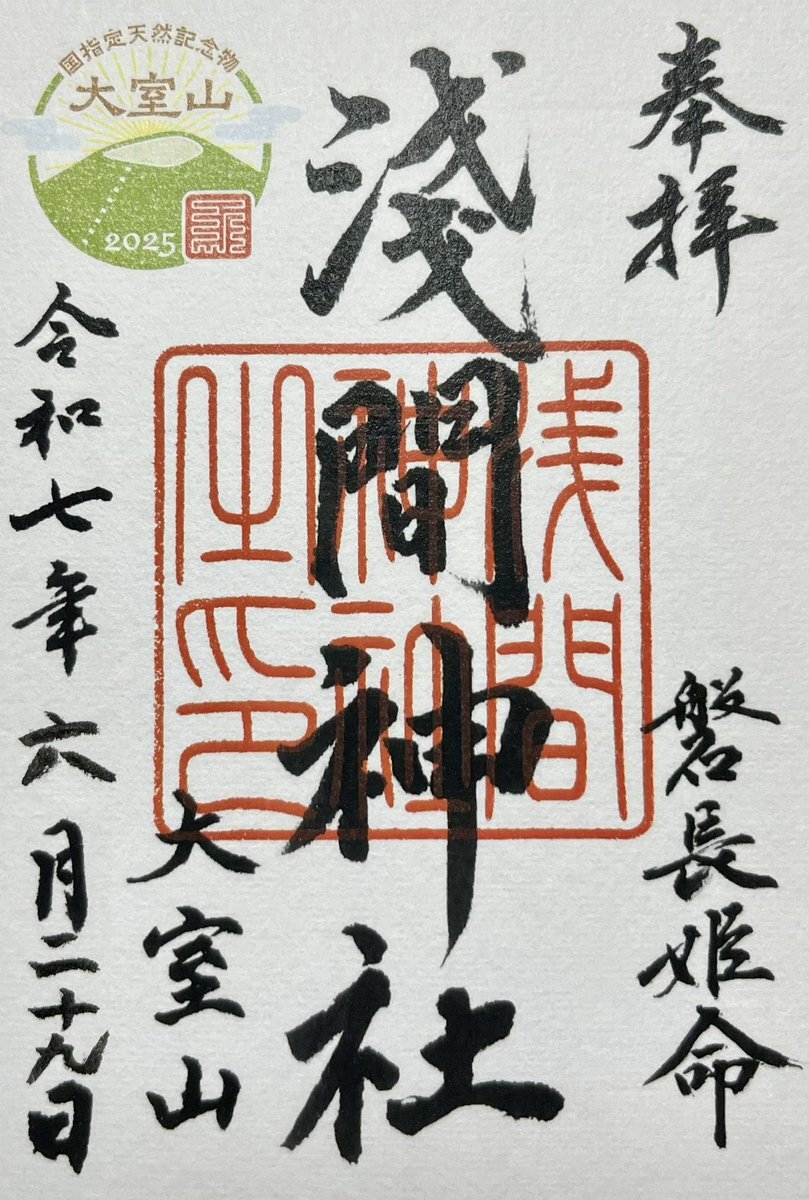 奉拝
磐長姫命
淺間神社
浅間
神社
之印
大室山
令和七年六月二十九日
国指定天然記念物
大室山
2025